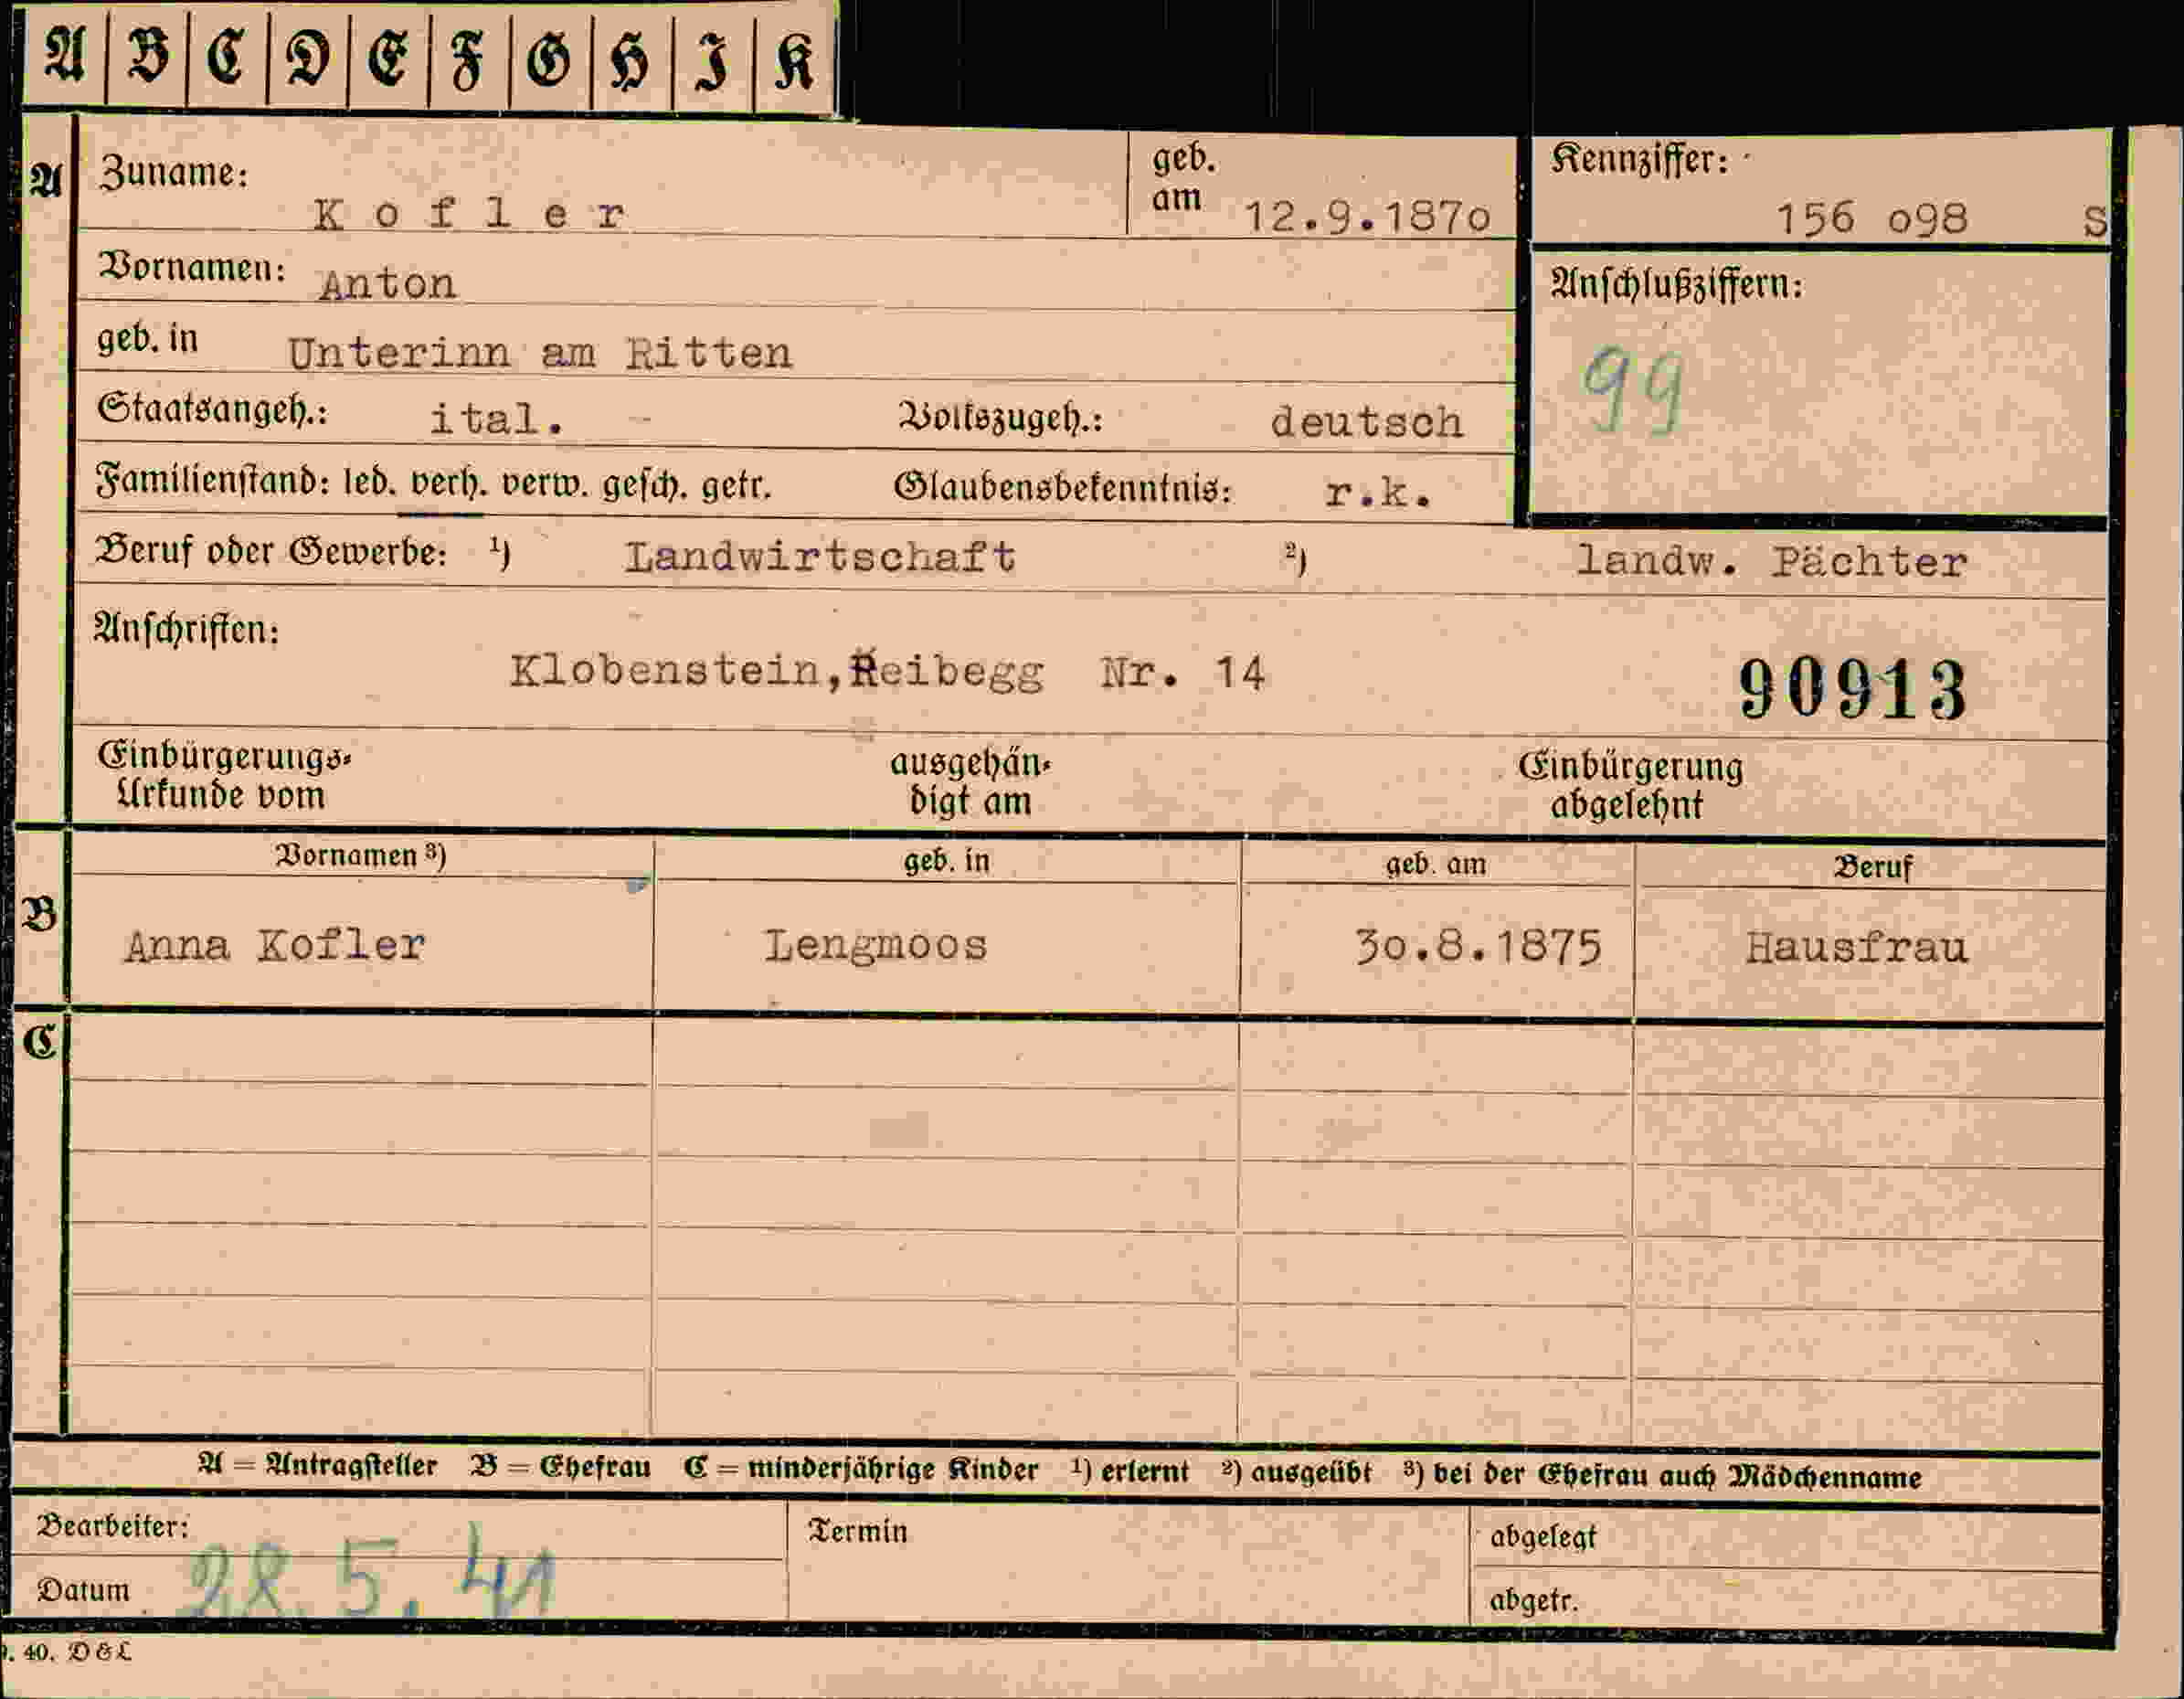 A B C D E F G H I K
A Zuname: Kofler geb. am 12.9.187o Kennziffer: 156 o98 S
Vornamen: Anton Anschlußziffern:
geb. in Unterinn am Ritten 99
Staatsangeh.: ital. Volkszugeh.: deutsch
Familienstand: led. verh. verw. gesch. getr. Glaubensbekenntnis: r.k.
Beruf oder Gewerbe: ¹) Landwirtschaft ²) landw. Pächter
Anschriften:
Klobenstein, Reibegg Nr. 14 90913
Einbürgerungs- ausgehän- Einbürgerung
Urkunde vom digt am abgelehnt
Vornamen ³) geb. in geb. am Beruf
B Anna Kofler Lengmoos 3o.8.1875 Hausfrau
C
A = Antragsteller B = Ehefrau C = minderjährige Kinder ¹) erlernt ²) ausgeübt ³) bei der Ehefrau auch Mädchenname
Bearbeiter: Termin abgelegt
Datum 28.5.41 abgetr.
. 40. D&L